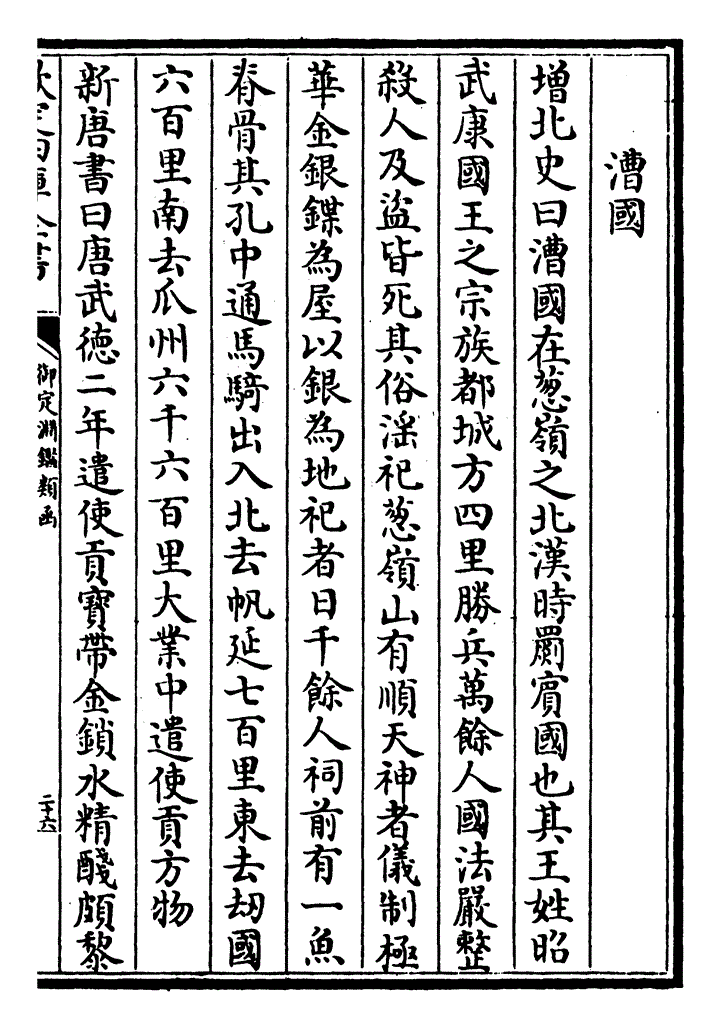 漕國
增北史曰漕國在葱嶺之北漢時罽賓國也其王姓昭
武康國王之宗族都城方四里勝兵萬餘人國法嚴整
殺人及盜皆死其俗淫祀葱嶺山有順天神者儀制極
華金銀鍱為屋以銀為地祀者日千餘人祠前有一魚
脊骨其孔中通馬騎出入北去帆延七百里東去刼國
六百里南去瓜州六千六百里大業中遣使貢方物
新唐書曰唐武德二年遣使貢寶帶金鎖水精醆頗黎
欽定四庫全書
御定淵鑑類函
二十六